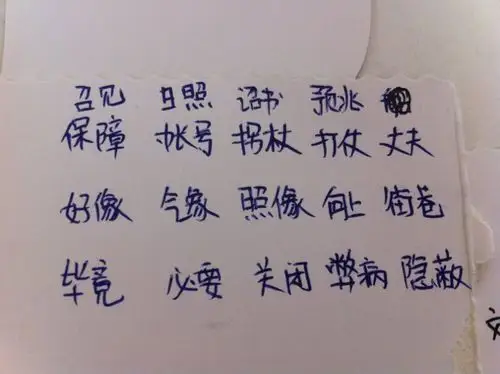 召见 日照 诏书 预兆
保障 帐号 拐杖 打仗 丈夫
好像 气象 照像 向上 街巷
毕竟 必要 关闭 弊病 隐蔽